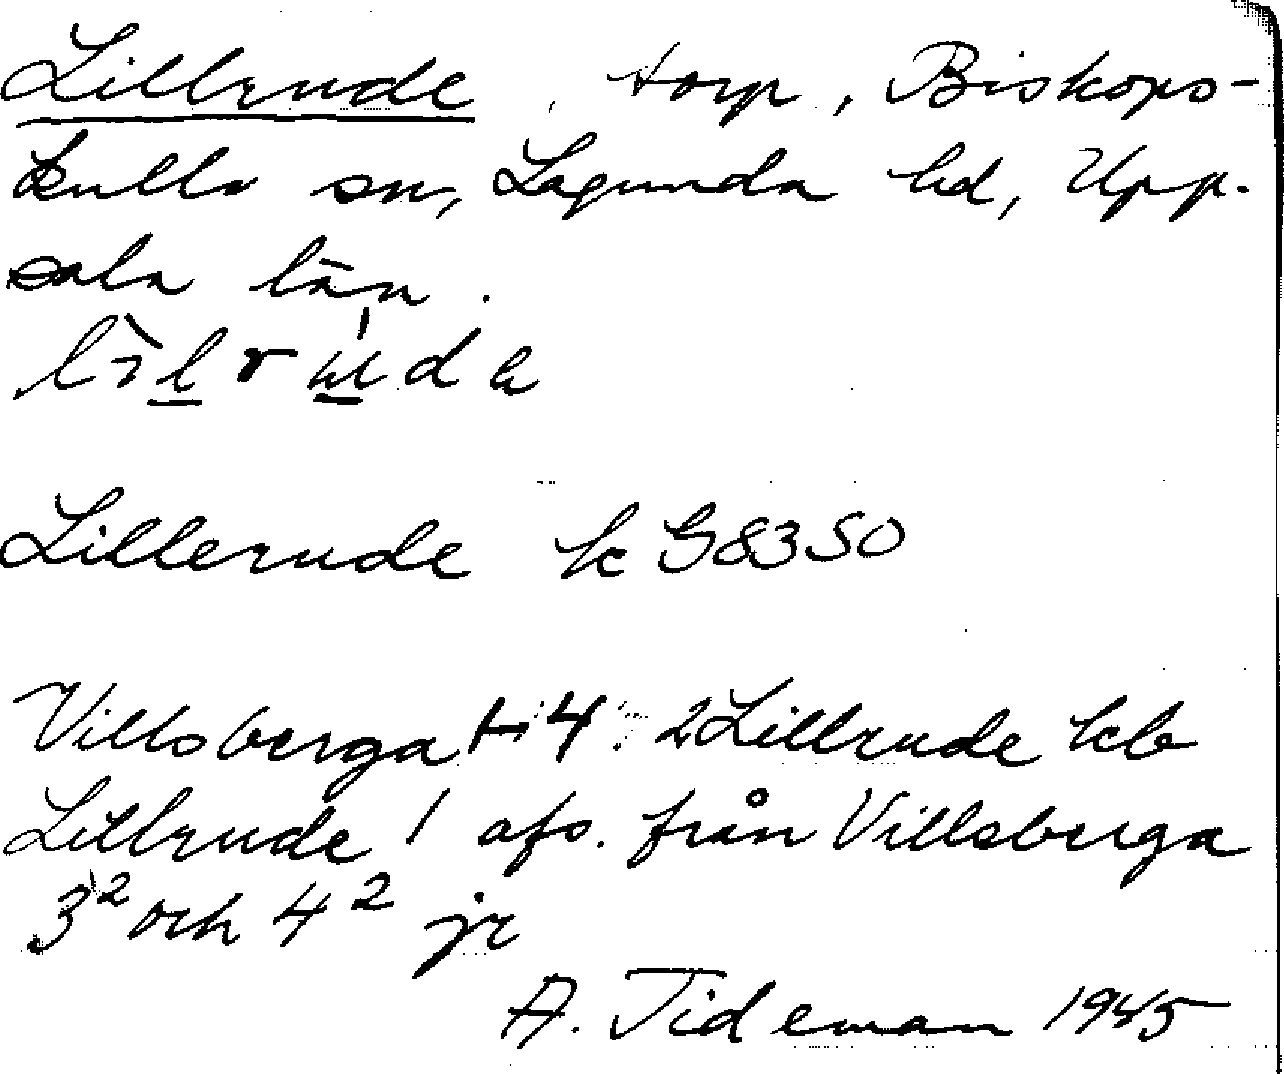 Lillrude, torp, Biskops-
kulla sn, Lagunda hd, Upp-
sala län.
Lillerude k G8350
Villsberga 1-4: 2 Lillrude kb
Lillrude 1 afs. från Villsberga
3² och 4² jr
A. Tideman 1945